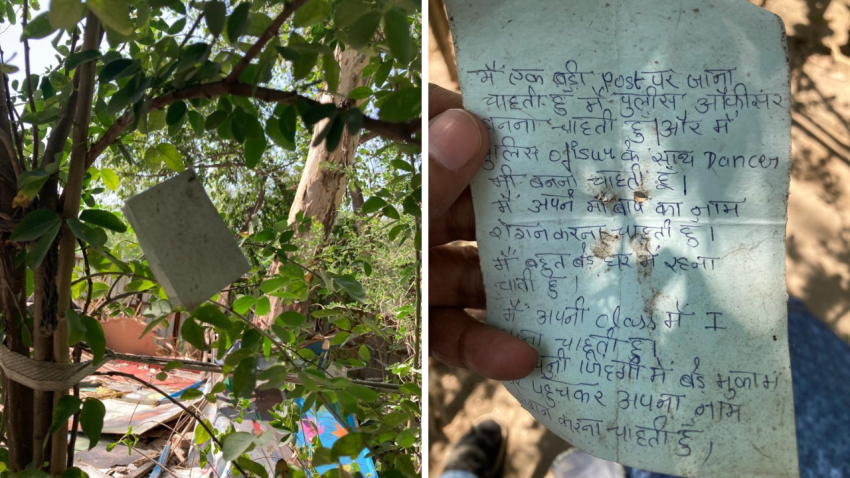 मैं एक बड़ी Post पर जाना
चाहती हु मैं पुलीस ऑफीसर
बनना चाहती हु। और मैं
पुलिस ofisur के साथ Dancer
भी बनना चाहती हु।
मैं अपने माँ बाप का नाम
रोशन करना चाहती हु।
मैं बहुत बड़े घर में रहना
चाती हु।
मैं अपनी class मैं I
चाहती हु।
में बड़े मुकाम
पहुचकर अपना नाम
करना चाहती हु।